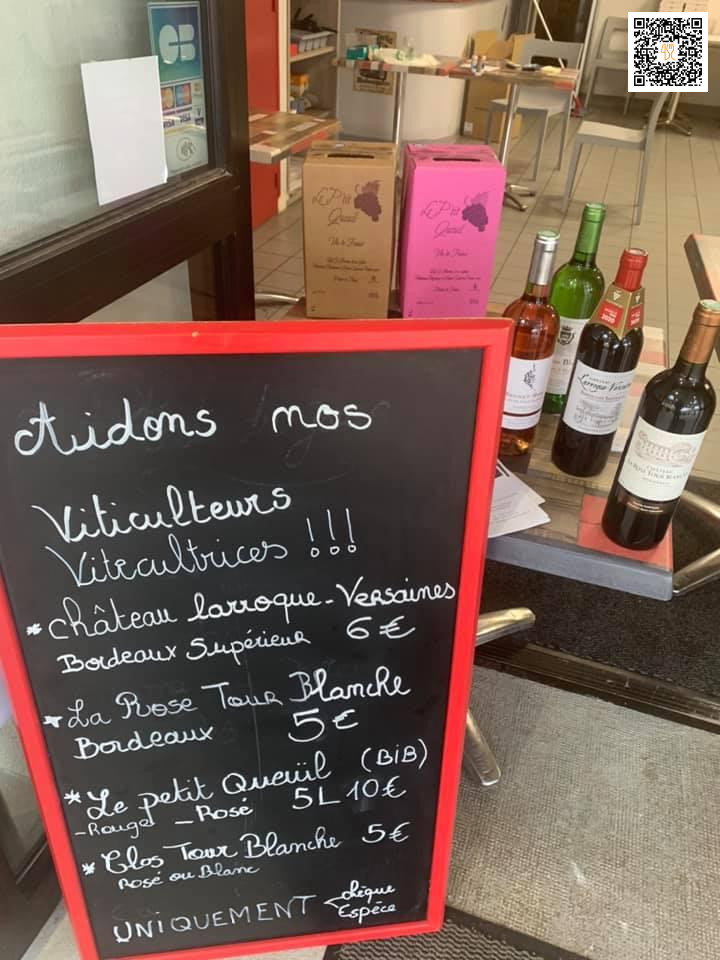 Aidons nos
Viticulteurs
Vitecultrices !!!
* Château Larroque-Versaines
Bordeaux Supérieur 6€
* La Rose Tour Blanche
Bordeaux 5€
* Le petit Queüil (BiB)
-Rouge -Rosé 5L 10€
* Clos Tour Blanche 5€
Rosé ou Blanc
UNIQUEMENT chèque
Espèce
Le P'tit
Queuil
Vin de France
Le P'tit
Queuil
Vin de France
CB
VISA
VISA
CHATEAU
Larroque Versaines
2020
CHATEAU
LA ROSE TOUR BLANCHE
BORDEAUX